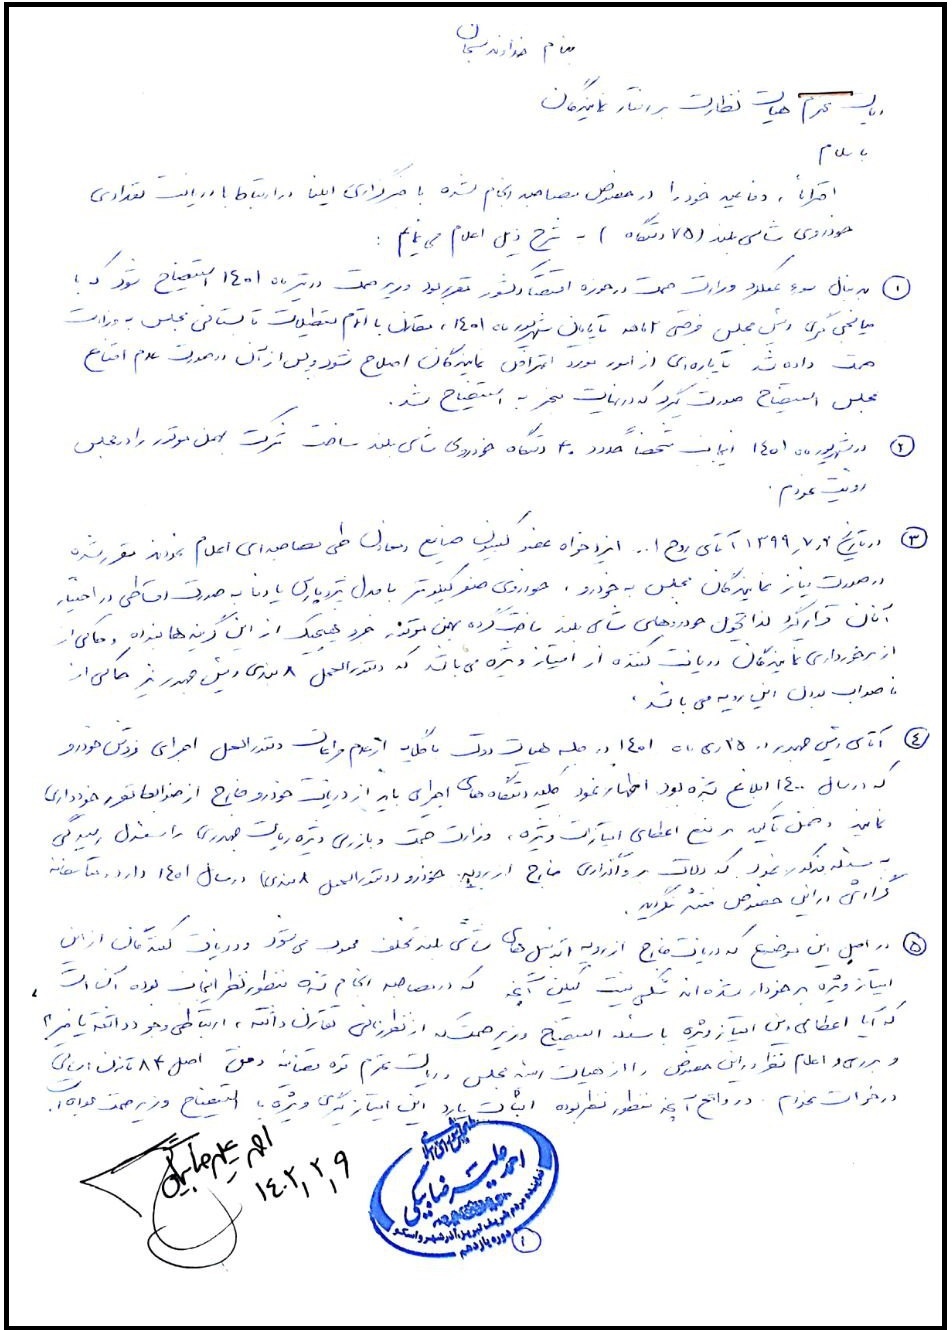 بنام خداوند سبحان
ریاست محترم هیات نظارت بر رفتار نمایندگان
با سلام
احتراماً، دفاعیه خود را در خصوص مصاحبه انجام شده با خبرگزاری ایلنا در ارتباط با دریافت تعدادی
خودروی شاسی بلند (۷۵ دستگاه) به شرح ذیل اعلام می نمایم :
۱ به دنبال سوء عملکرد وزارت صمت در حوزه اقتصاد کشور مقرر بود وزیر صمت در تیر ماه ۱۴۰۱ استیضاح شود که با
میانجی گری رئیس مجلس فرصتی ۲ ماهه تا پایان شهریور ماه ۱۴۰۱، مقارن با اتمام تعطیلات تابستانی مجلس به وزارت
صمت داده شد تا پاره‌ای از امور مورد اعتراض نمایندگان اصلاح شود و پس از آن در صورت عدم اقناع
مجلس استیضاح صورت گیرد که در نهایت منجر به استیضاح شد.
۲ در شهریور ماه ۱۴۰۱ اینجانب شخصاً حدود ۴۰ دستگاه خودروی شاسی بلند ساخت شرکت بهمن موتور را در مجلس
رویت نمودم.
۳ در تاریخ ۱۳۹۹٫۷٫۲ آقای روح ا... ایزدخواه عضو کمیسیون صنایع و معادن طی مصاحبه‌ای اعلام نمودند مقرر شده
در صورت نیاز نمایندگان مجلس به خودرو، خودروی صفر کیلومتر با مدل تیبا، پارس یا دنا به صورت اقساطی در اختیار
آنان قرار گیرد لذا تحویل خودروهای شاسی بلند ساخت گروه بهمن موتور جزو هیچیک از این گزینه ها نبوده و حاکی از
از برخورداری نمایندگان دریافت کننده از امتیاز ویژه می باشد که دستورالعمل ۸ بندی رئیس جمهور نیز حاکی از
ناصواب بودن این رویه می باشد.
۴ آقای رئیس جمهور در ۲۵ دی ماه ۱۴۰۱ در جلسه هیات دولت با گلایه از عدم مراعات دستورالعمل اجرای فروش خودرو
که در سال ۱۴۰۰ ابلاغ شده بود اظهار نمود کلیه دستگاه های اجرای باید از دریافت خودرو خارج از ضوابط مقرر خودداری
نمایند و ضمن تأکید بر منع اعطای امتیازات ویژه، وزارت صمت و بازرسی ویژه ریاست جمهوری را مسئول رسیدگی
به مسئله مذکور نمود که دلالت بر واگذاری خارج از رویه خودرو (دستورالعمل ۸ بندی) در سال ۱۴۰۱ دارد، متأسفانه
گزارشی در این خصوص منتشر نگردید.
۵ در اصل این موضوع که دریافت خارج از رویه اتومبیل های شاسی بلند تخلف محسوب می شود و دریافت کنندگان از این
امتیاز ویژه برخوردار شده اند شکی نیست لیکن آنچه که در مصاحبه انجام شده منظور نظر اینجانب بوده آن است
که آیا اعطای این امتیاز ویژه با مسئله استیضاح وزیر صمت که از نظر زمانی تقارن داشته، ارتباطی وجود داشته یا خیر؟
و بررسی و اعلام نظر در این خصوص را از هیات رئیسه مجلس و ریاست محترم قوه قضائیه وفق اصل ۸۴ قانون اساسی
درخواست نمودم. در واقع آنچه منظور نظر بوده اثبات یا رد این امتیازگیری ویژه با استیضاح وزیر صمت بوده است.
احمد علیرضا بیگی
۱۴۰۲٫۲٫۹
مجلس شورای اسلامی
احمد علیرضا بیگی
نماینده مردم شریف تبریز، آذرشهر و اسکو
دوره یازدهم
۱